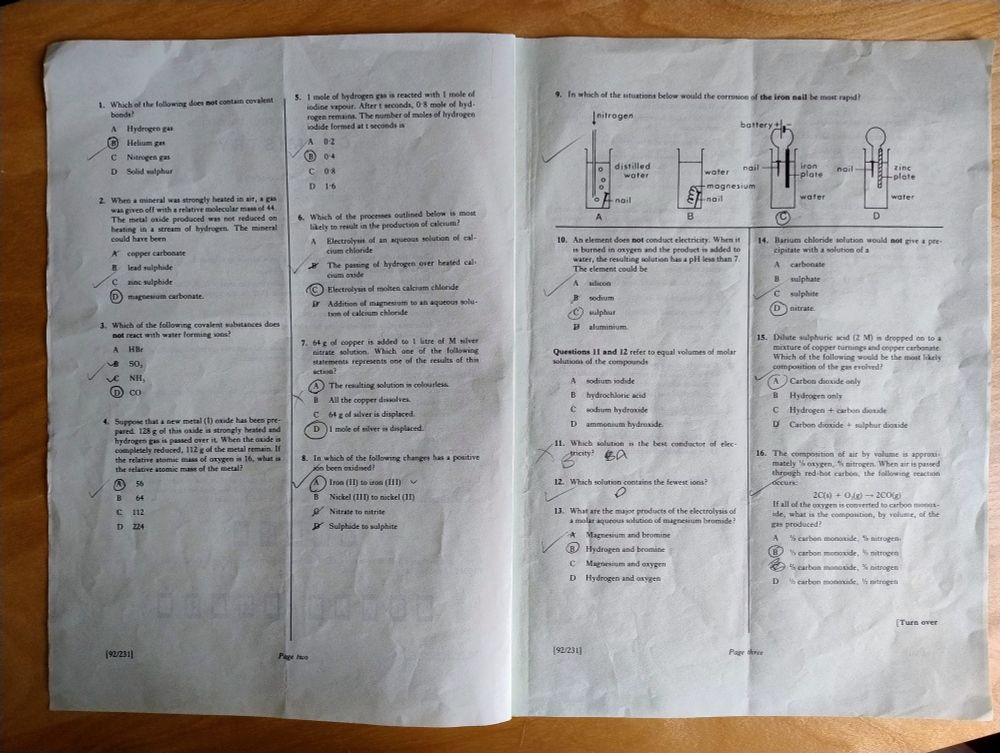 1. Which of the following does not contain covalent
bonds?
A Hydrogen gas
B Helium gas
C Nitrogen gas
D Solid sulphur
2. When a mineral was strongly heated in air, a gas
was given off with a relative molecular mass of 44.
The metal oxide produced was not reduced on
heating in a stream of hydrogen. The mineral
could have been
A copper carbonate
B lead sulphide
C zinc sulphide
D magnesium carbonate.
3. Which of the following covalent substances does
not react with water forming ions?
A HBr
B SO₂
C NH₃
D CO
4. Suppose that a new metal (I) oxide has been pre-
pared. 128 g of this oxide is strongly heated and
hydrogen gas is passed over it. When the oxide is
completely reduced, 112 g of the metal remain. If
the relative atomic mass of oxygen is 16, what is
the relative atomic mass of the metal?
A 56
B 64
C 112
D 224
[92/231]
Page two
5. 1 mole of hydrogen gas is reacted with 1 mole of
iodine vapour. After t seconds, 0·8 mole of hyd-
rogen remains. The number of moles of hydrogen
iodide formed at t seconds is
A 0·2
B 0·4
C 0·8
D 1·6
6. Which of the processes outlined below is most
likely to result in the production of calcium?
A Electrolysis of an aqueous solution of cal-
cium chloride
B The passing of hydrogen over heated cal-
cium oxide
C Electrolysis of molten calcium chloride
D Addition of magnesium to an aqueous solu-
tion of calcium chloride
7. 64 g of copper is added to 1 litre of M silver
nitrate solution. Which one of the following
statements represents one of the results of this
action?
A The resulting solution is colourless.
B All the copper dissolves.
C 64 g of silver is displaced.
D 1 mole of silver is displaced.
8. In which of the following changes has a positive
ion been oxidised?
A Iron (II) to iron (III)
B Nickel (III) to nickel (II)
C Nitrate to nitrite
D Sulphide to sulphite
9. In which of the situations below would the corrosion of the iron nail be most rapid?
nitrogen
distilled
water
nail
A
water
magnesium
nail
B
battery + −
nail
iron
plate
water
C
nail
zinc
plate
water
D
10. An element does not conduct electricity. When it
is burned in oxygen and the product is added to
water, the resulting solution has a pH less than 7.
The element could be
A silicon
B sodium
C sulphur
D aluminium.
Questions 11 and 12 refer to equal volumes of molar
solutions of the compounds
A sodium iodide
B hydrochloric acid
C sodium hydroxide
D ammonium hydroxide.
11. Which solution is the best conductor of elec-
tricity? A
B
12. Which solution contains the fewest ions?
D
13. What are the major products of the electrolysis of
a molar aqueous solution of magnesium bromide?
A Magnesium and bromine
B Hydrogen and bromine
C Magnesium and oxygen
D Hydrogen and oxygen
[92/231]
Page three
14. Barium chloride solution would not give a pre-
cipitate with a solution of a
A carbonate
B sulphate
C sulphite
D nitrate.
15. Dilute sulphuric acid (2 M) is dropped on to a
mixture of copper turnings and copper carbonate.
Which of the following would be the most likely
composition of the gas evolved?
A Carbon dioxide only
B Hydrogen only
C Hydrogen + carbon dioxide
D Carbon dioxide + sulphur dioxide
16. The composition of air by volume is approxi-
mately ⅕ oxygen, ⅘ nitrogen. When air is passed
through red-hot carbon, the following reaction
occurs:
2C(s) + O₂(g) → 2CO(g)
If all of the oxygen is converted to carbon monox-
ide, what is the composition, by volume, of the
gas produced?
A carbon monoxide, nitrogen
B carbon monoxide, nitrogen
C carbon monoxide, nitrogen
D carbon monoxide, nitrogen
[Turn over